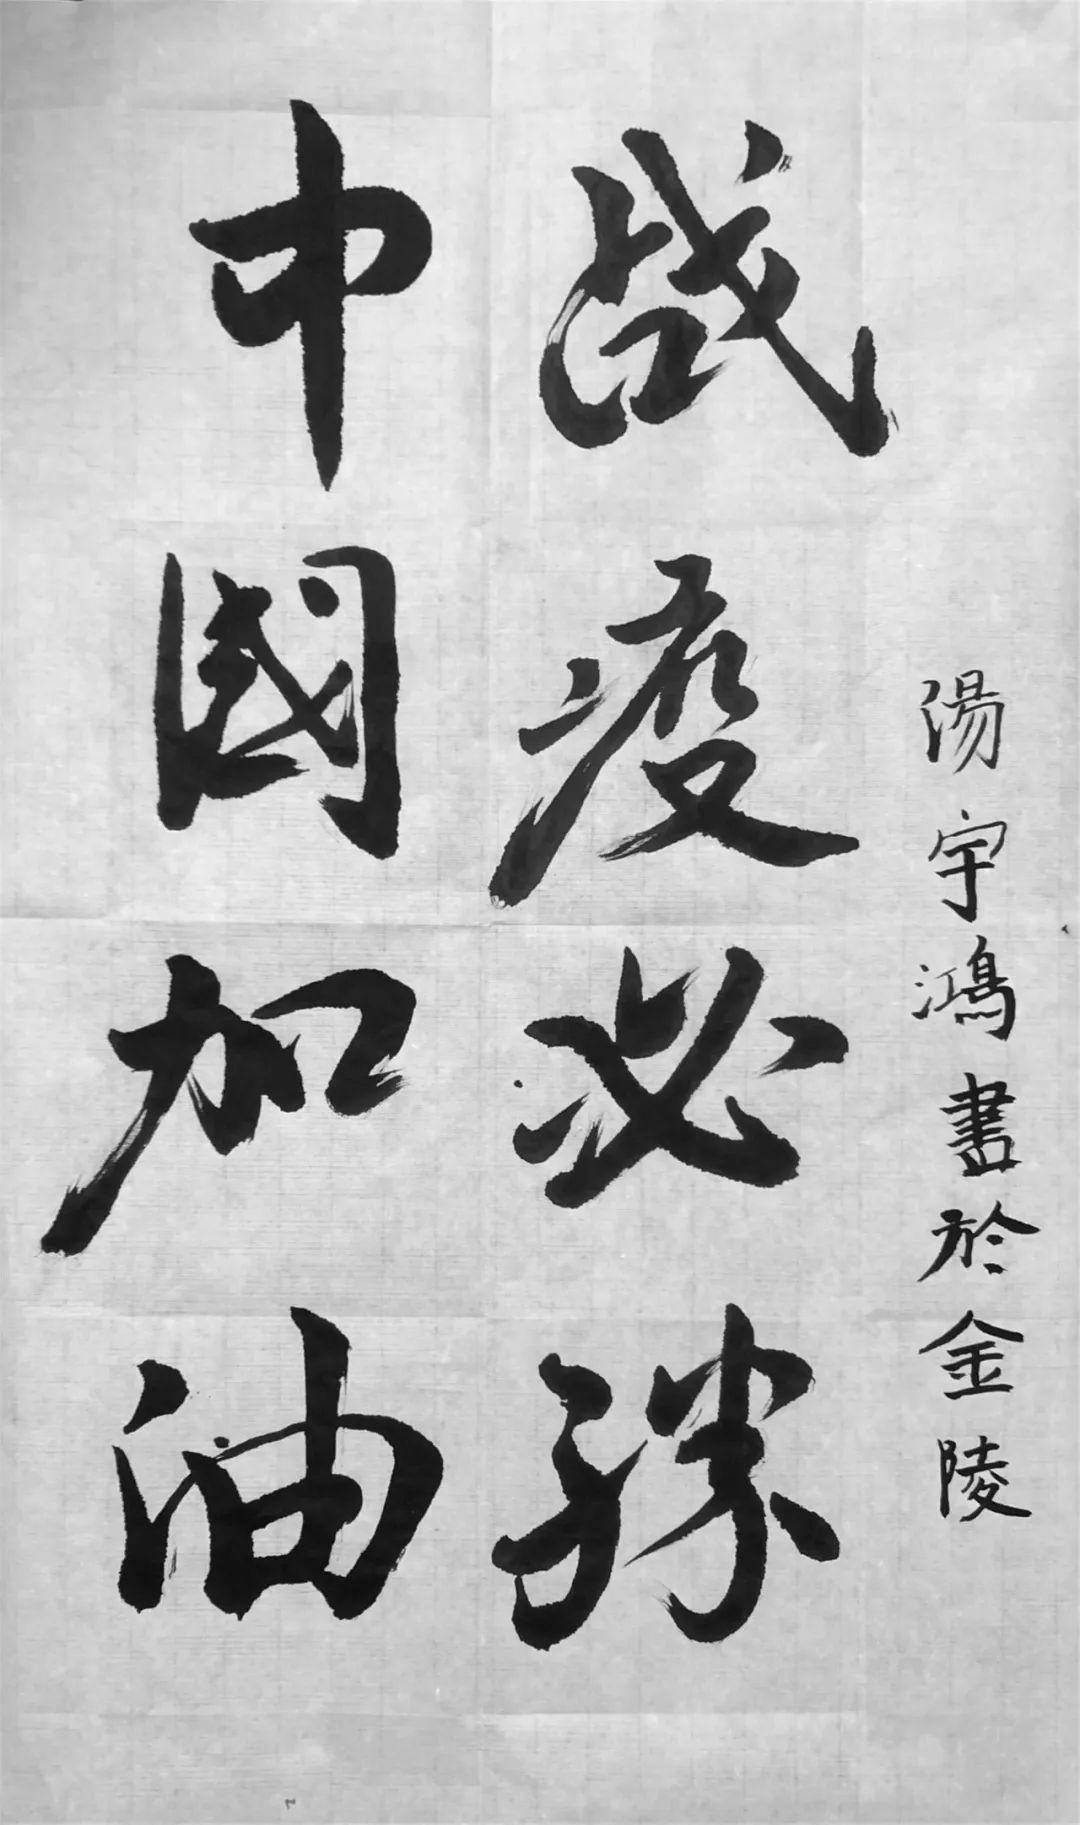 湯宇鴻書於金陵
战疫必勝
中國加油